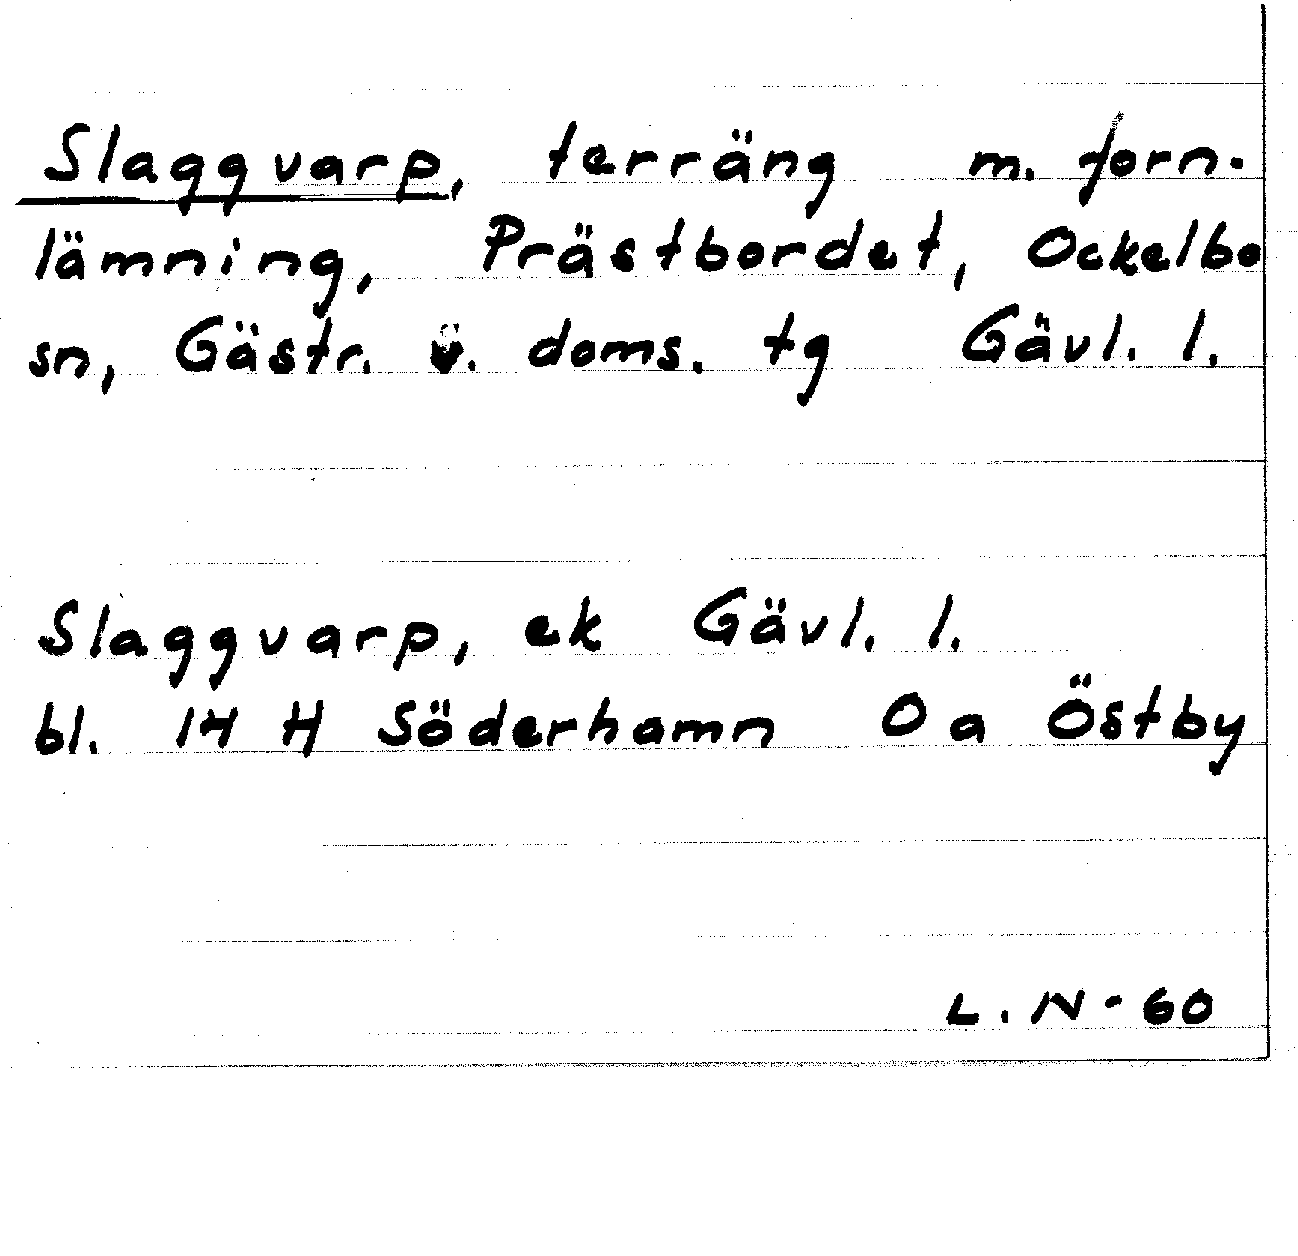 Slaggvarp, terräng m. forn-
lämning, Prästbordet, Ockelbo
sn, Gästr. v. doms. tg Gävl. l.
Slaggvarp, ek Gävl. l.
bl. 14 H Söderhamn 0 a Östby
L. N - 60